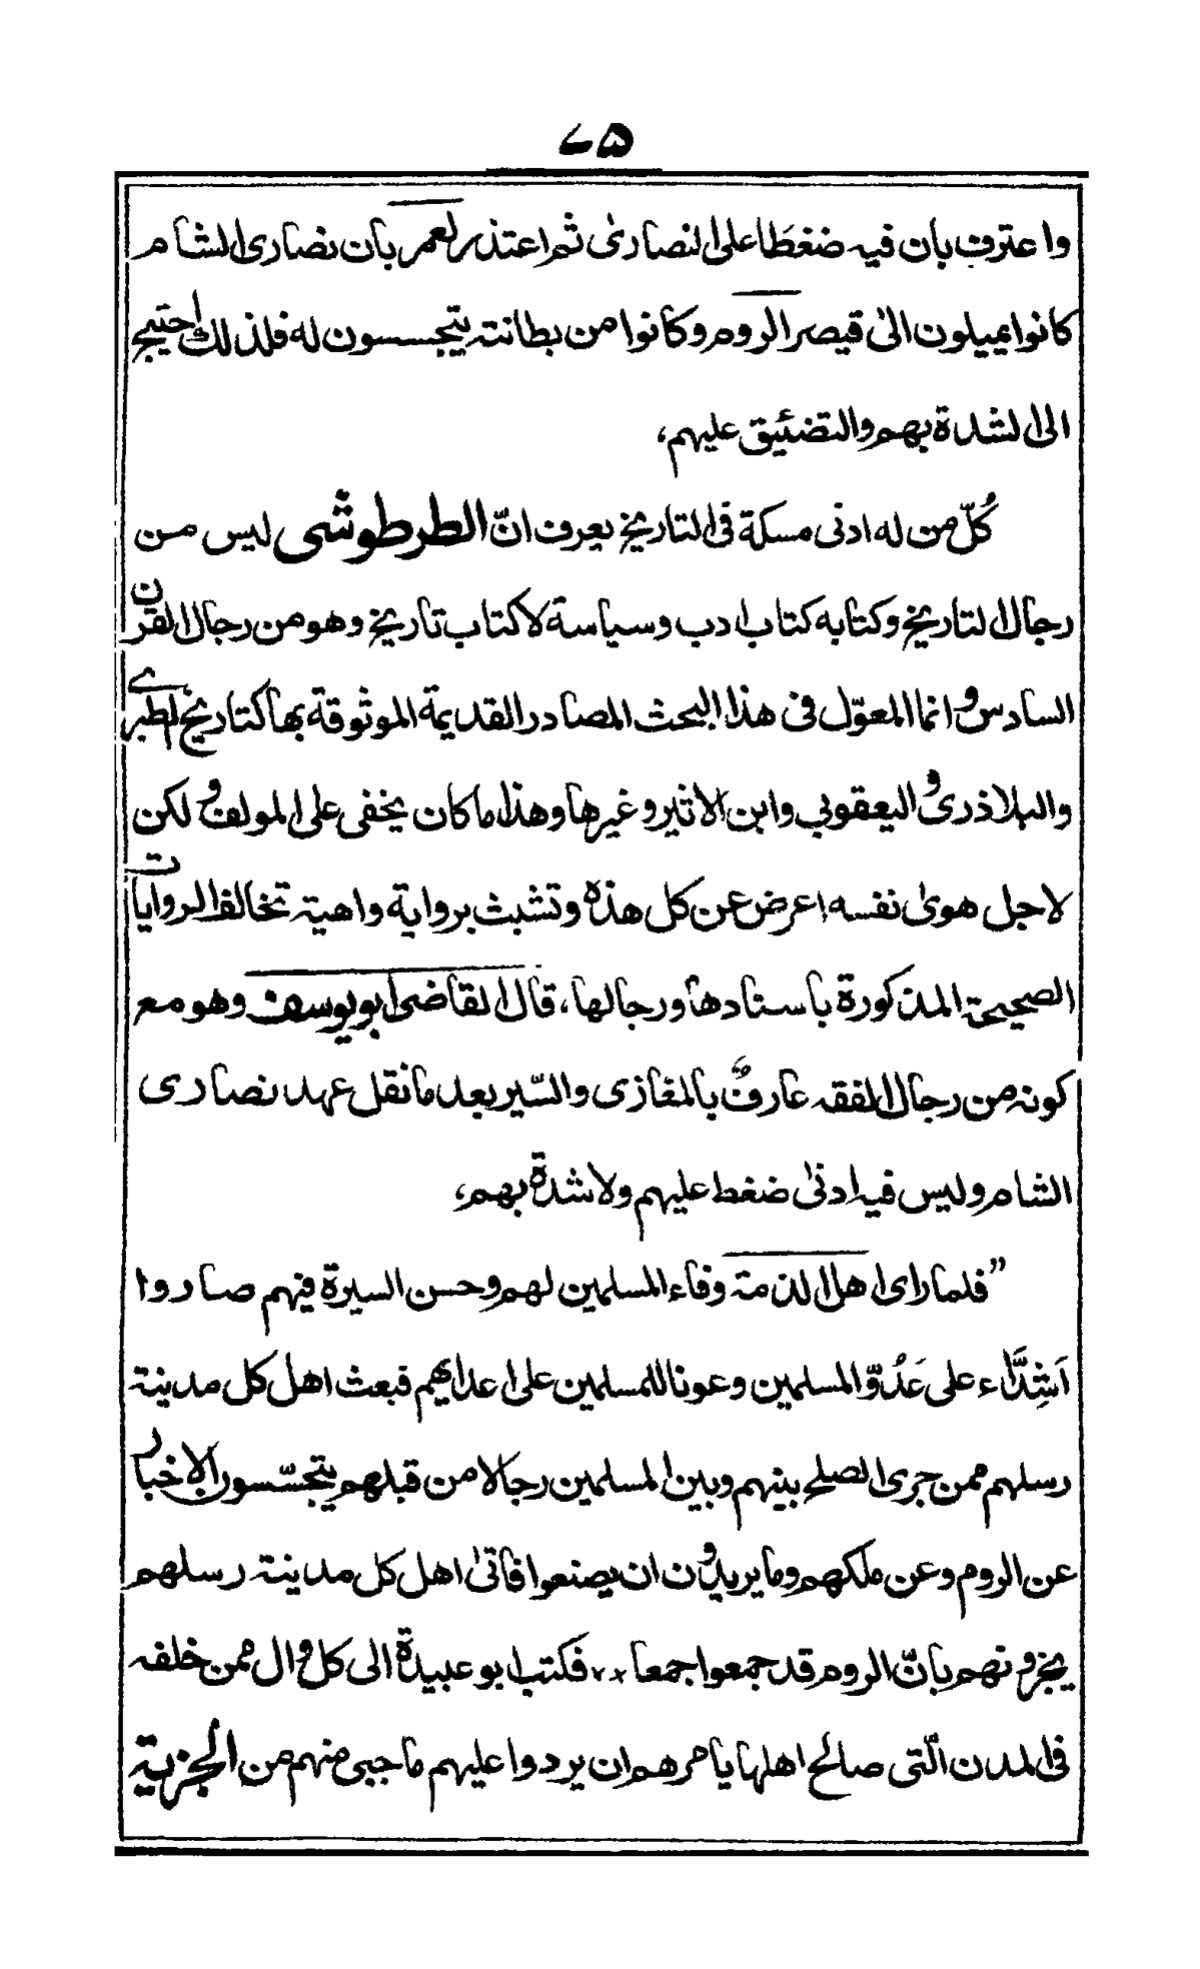 ٦۵
واعترف بان فيه ضغطًا على النصارىٰ ثم اعتذر لعمر بان نصارى الشام
كانوا يميلون الىٰ قيصر الروم وكانوا من بطانته يتجسسون له فلذلك احتيج
الى الشدة بهم والتضئيق عليهم،
كُلّ من له ادنى مسكة فى التاريخ يعرف انّ الطرطوشى ليس من
رجال التاريخ وكتابه كتاب ادب وسياسة لا كتاب تاريخ وهو من رجال القرن
السادس وانما المعوّل فى هذا البحث المصادر القديمة الموثوقة بها كتاريخ الطبرى
والبلاذرى واليعقوبي وابن الاثير وغيرها وهذا ما كان يخفى على المولف ولكن
لاجل هوىٰ نفسه اعرض عن كل هذه وتشبث برواية واهية تخالف الروايات
الصحيحة المذكورة باسنادها ورجالها، قال القاضى ابو يوسف وهو مع
كونه من رجال الفقه عارفٌ بالمغازى والسّير بعد ما نقل عهد نصارى
الشام وليس فيه ادنىٰ ضغط عليهم ولا شدة بهم،
”فلما راى اهل الذمة وفاء المسلمين لهم وحسن السيرة فيهم صاروا
اَشِدَّاء على عَدُوّ المسلمين وعونا للمسلمين على اعدايهم فبعث اهل كل مدينة
رسلهم ممن جرى الصلح بينهم وبين المسلمين رجالا من قبلهم يتجسّسون الاخبار
عن الروم وعن ملكهم وما يريدون ان يصنعوا فاتىٰ اهل كل مدينة رسلهم
يخبرونهم بانّ الروم قد جمعوا جمعا ×× فكتب ابو عبيدة الى كل وال ممن خلفه
فى المدن الّتى صالح اهلها يامرهم ان يردوا عليهم ما جبى منهم من الجزية